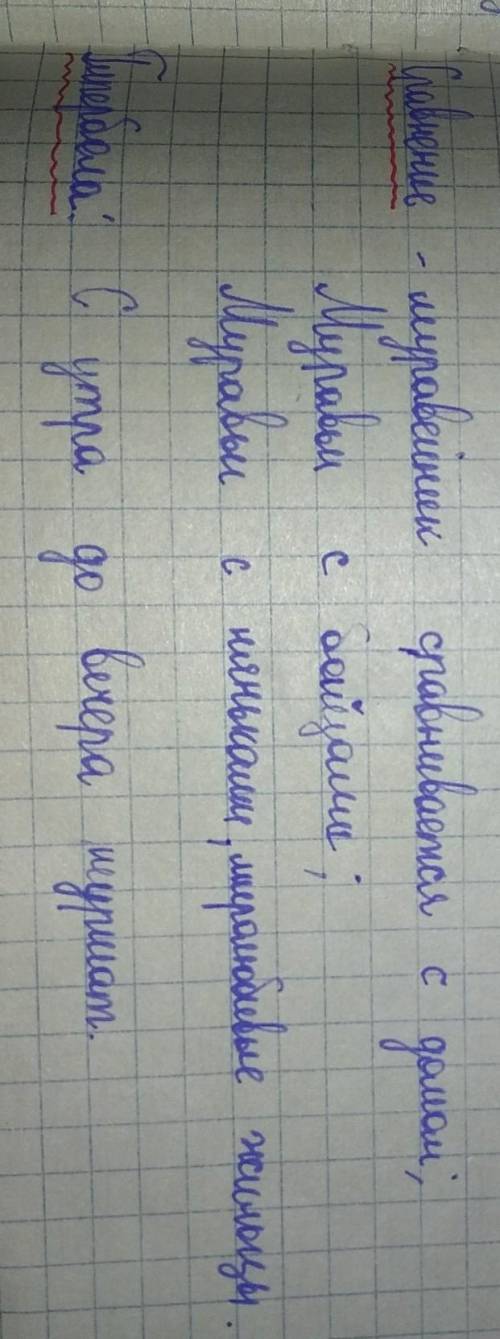 Сравнение - муравейник сравнивается с домом;
Муравьи с бойцами;
Муравьи с няньками, миролюбивые жильцы.
Гипербола: С утра до вечера шуршат.